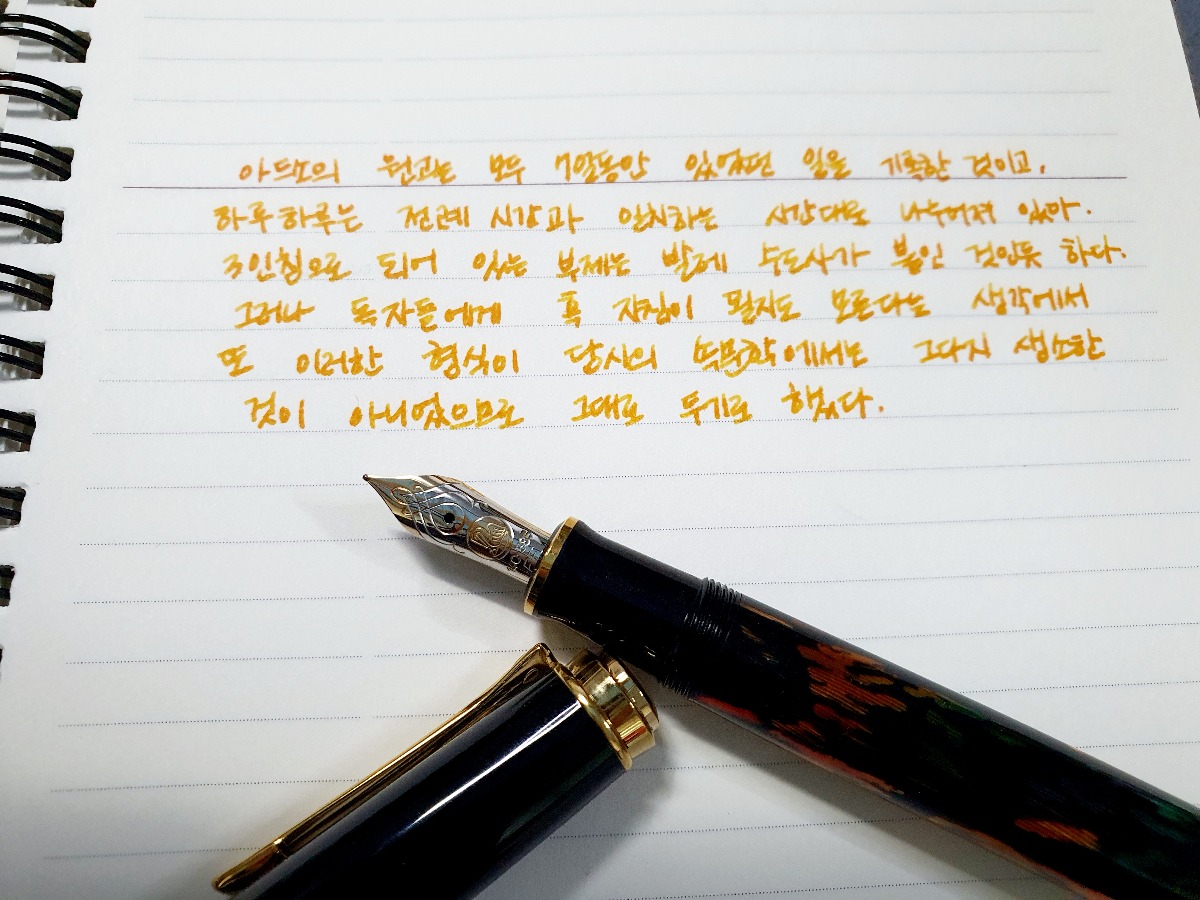 아드소의 원고는 모두 7일동안 있었던 일을 기록한 것이고,
하루하루는 전례 시간과 일치하는 시간대로 나누어져 있다.
3인칭으로 되어 있는 부제는 발레 수도사가 붙인 것인듯 하다.
그러나 독자들에게 혹 지침이 될지도 모른다는 생각에서
또 이러한 형식이 당시의 속문학에서는 그다지 생소한
것이 아니었으므로 그대로 두기로 했다.